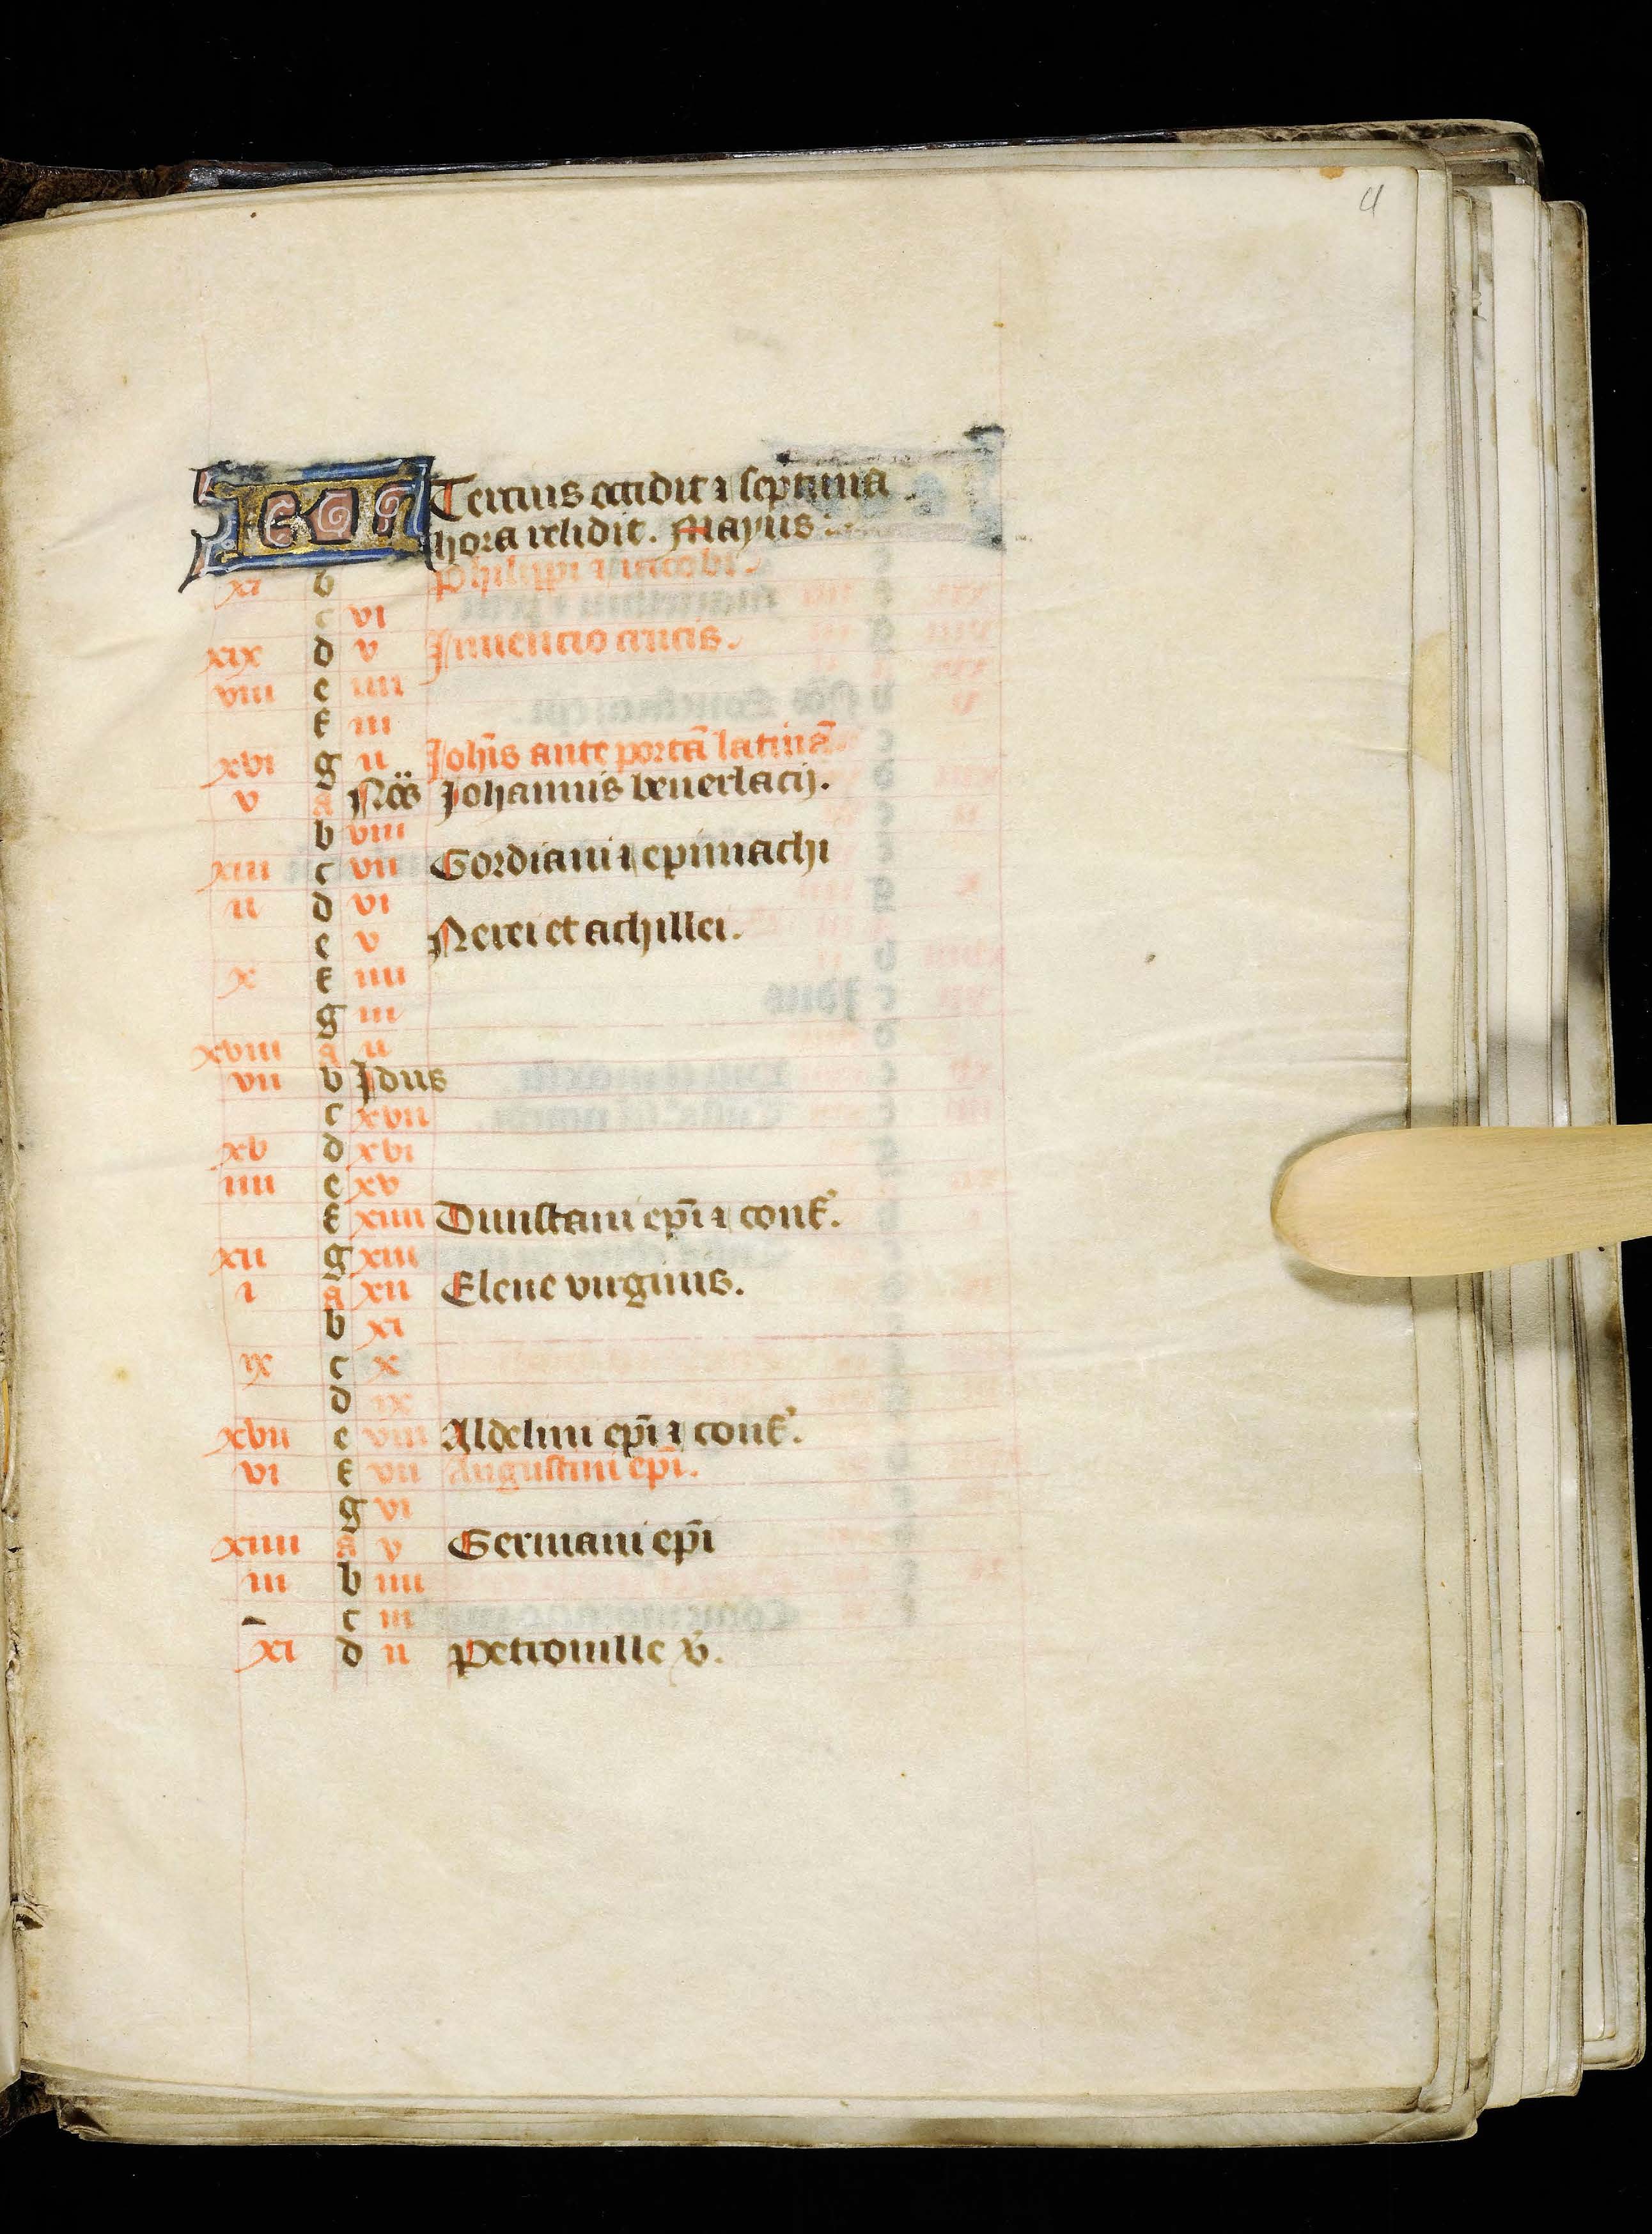 4
KL Tercius occidit ⁊ septima
hora relidit. Mayus
xi b Philippi ⁊ iacobi.
c vi
xix d v Inuencio crucis.
viii e iiii
f iii
xvi g ii Joh̄is ante portā latinā
v a Nōs Johannis beuerlacij.
b viii
xiii c vii Gordiani ⁊ epimachi
ii d vi
e v Nerei et achillei.
x f iiii
g iii
xviii a ii
vii b Idus
c xvii
xv d xvi
iiii e xv
f xiiii Dunstani ep̄i ⁊ conf'.
xii g xiii
i a xii Elene virginis.
b xi
ix c x
d ix
xvii e viii Aldelmi ep̄i ⁊ conf'.
vi f vii Augustini ep̄i.
g vi
xiiii a v Germani ep̄i
iii b iiii
c iii
xi d ii Petronille v̄.